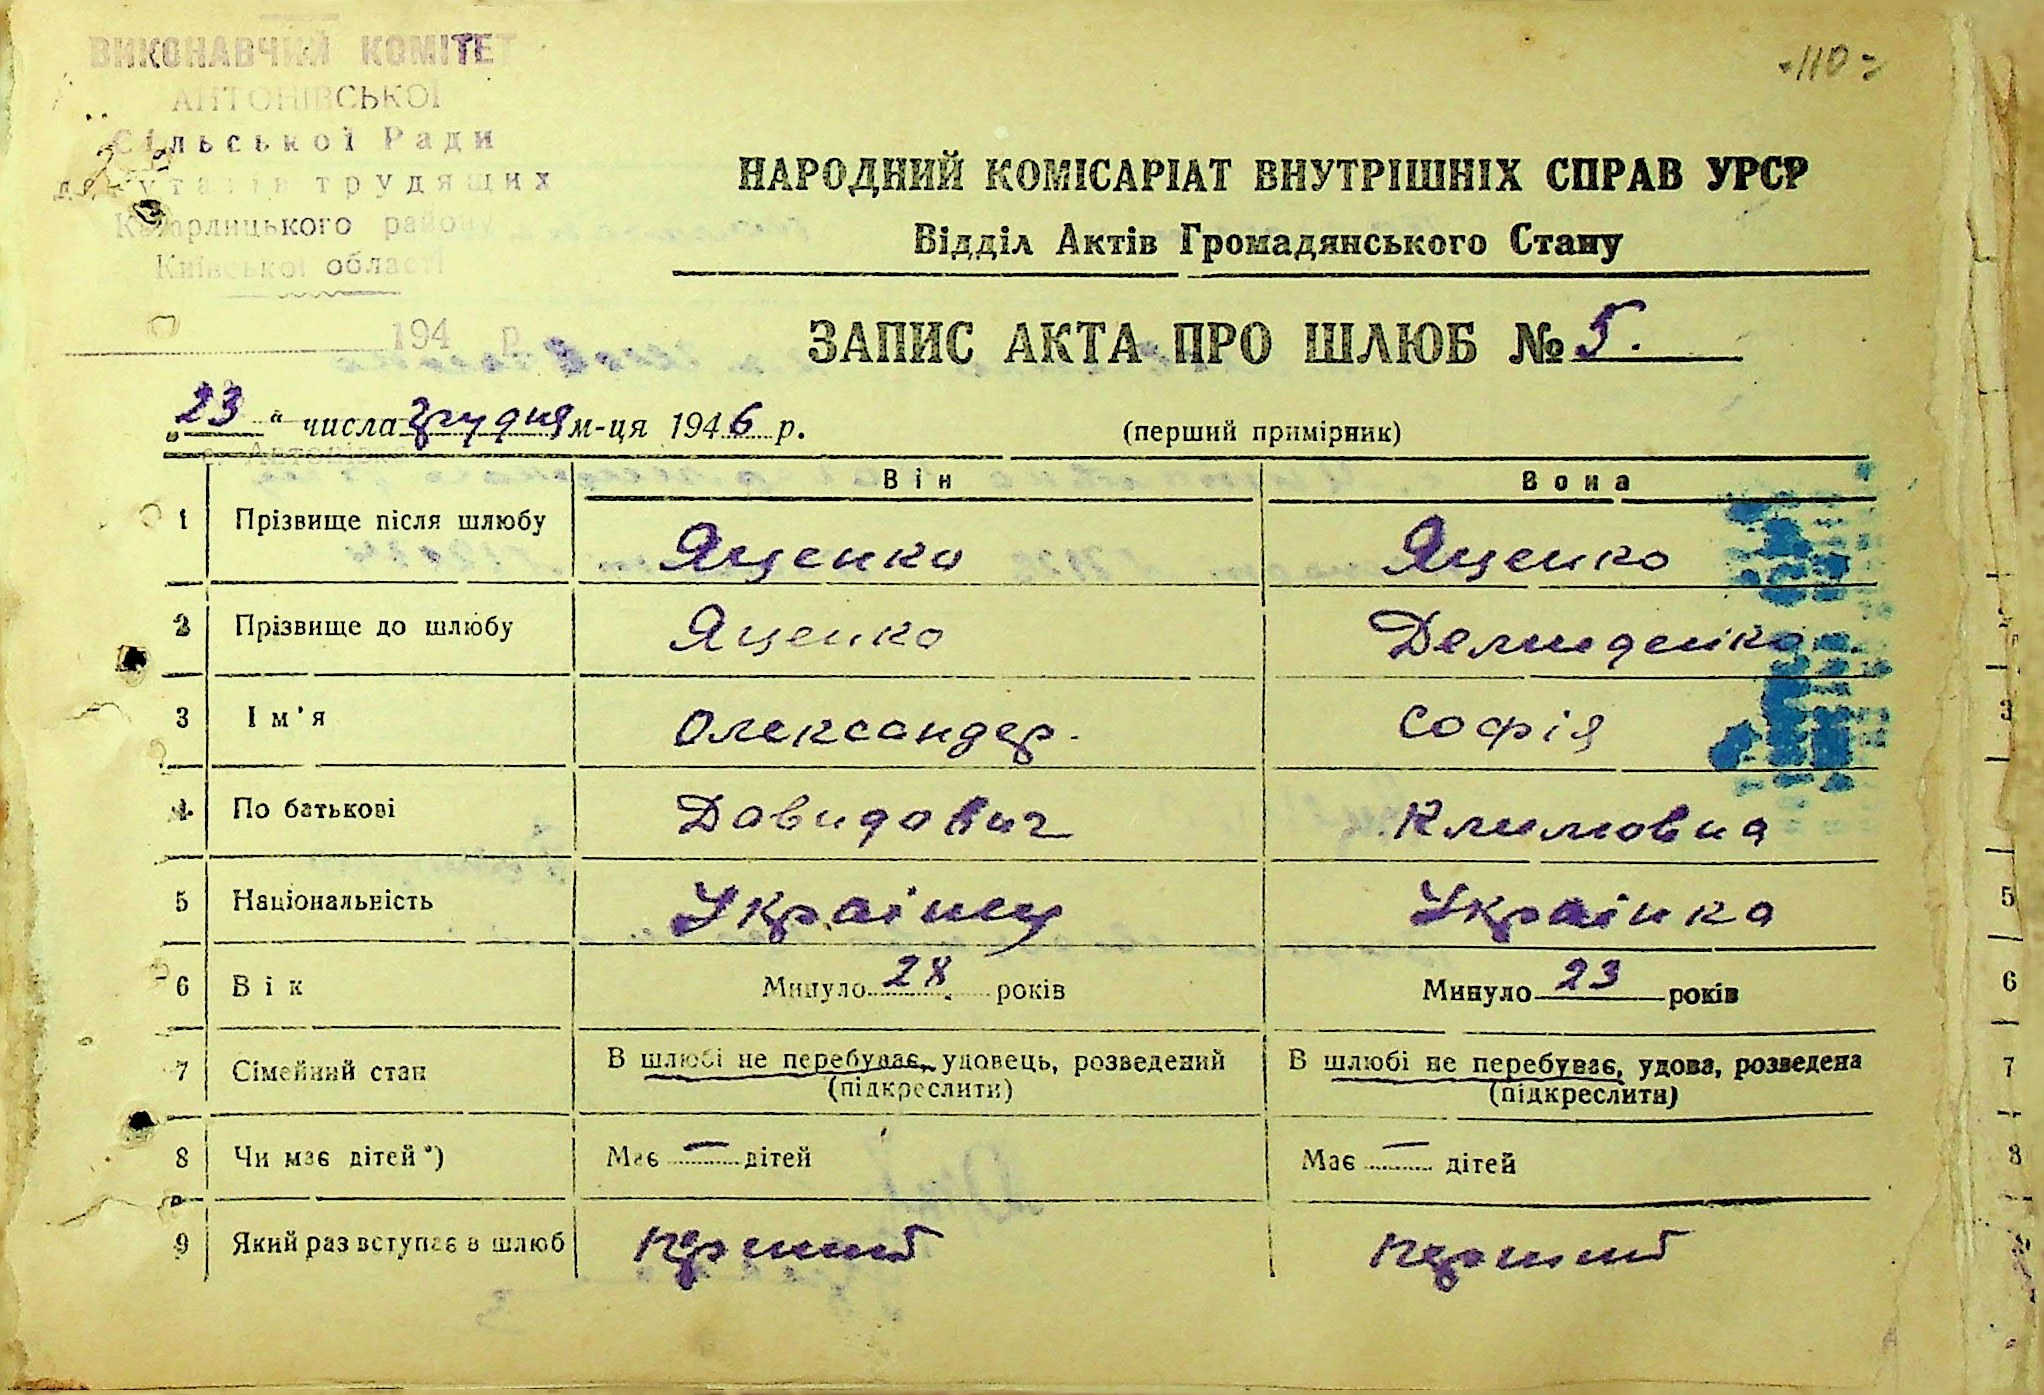 -110-
ВИКОНАВЧИЙ КОМІТЕТ
АНТОНІВСЬКОЇ
Сільської Ради
депутатів трудящих
Кагарлицького району
Київської області
194 р.
НАРОДНИЙ КОМІСАРІАТ ВНУТРІШНІХ СПРАВ УРСР
Відділ Актів Громадянського Стану
ЗАПИС АКТА ПРО ШЛЮБ № 5.
„23“ числа грудня м-ця 1946 р. (перший примірник)
Він Вона
1 Прізвище після шлюбу Яценко Яценко
2 Прізвище до шлюбу Яценко Демиденко
3 Ім'я Олександер. Софія
4 По батькові Давидович Климовна
5 Національність Українец Українка
6 Вік Минуло 28 років Минуло 23 років
7 Сімейний стан В шлюбі не перебуває, удовець, розведений В шлюбі не перебуває, удова, розведена
(підкреслити) (підкреслити)
8 Чи має дітей*) Має — дітей Має — дітей
9 Який раз вступає в шлюб перший перший
5
6
7
8